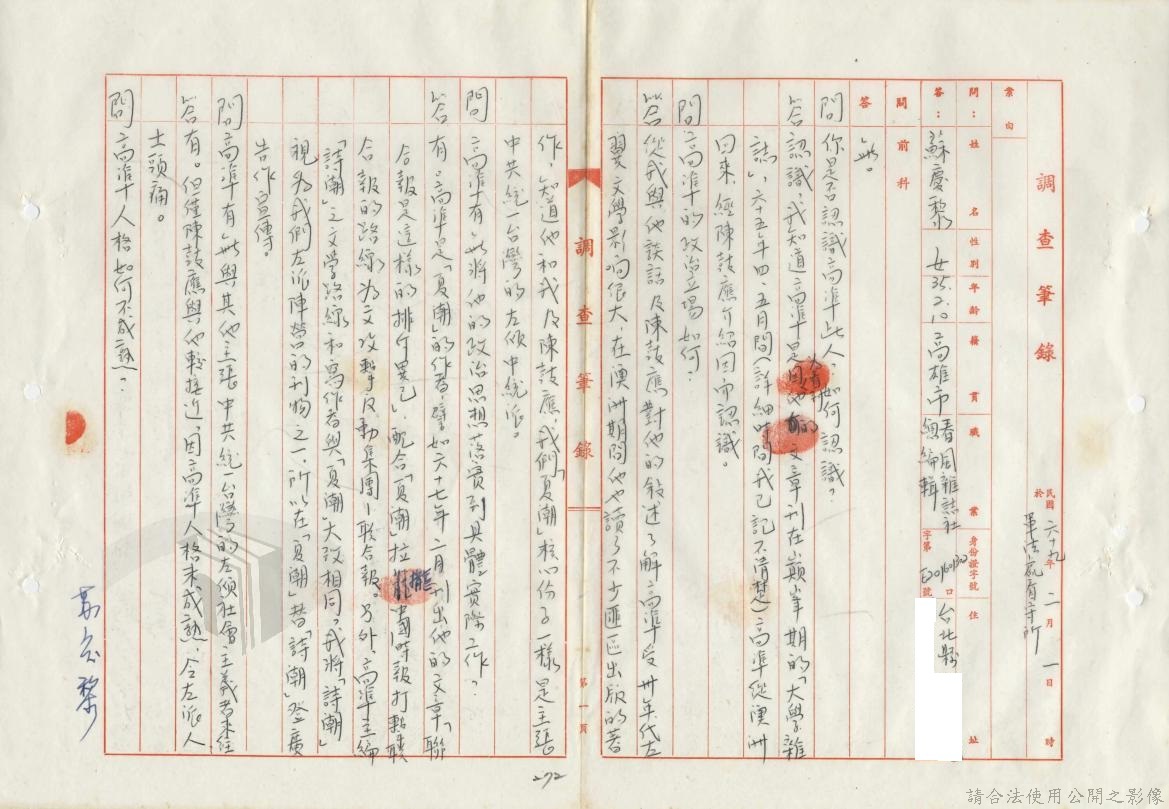 調查筆錄
民國六十九年二月一日 時
於軍法處看守所
案由
問：姓名 性別 年齡 籍貫 職業 身份證字號 住址
答：蘇慶黎 女 35.2.10 高雄市 春風雜誌社總編輯 字第 號 台北縣
問 前科
答 無。
問 你是否認識高準此人？如何認識？
答 認識，我知道高準是因他有文章刊在巔峯期的「大學雜
誌」，六十五年四、五月間（詳細時間我已記不清楚）高準從澳洲
回來，經陳鼓應介紹因而認識。
問 高準的政治立場如何？
答 從我與他談話及陳鼓應對他的敘述了解高準受卅年代左
翼文學影响很大，在澳洲期間他也讀了不少匪區出版的著
調查筆錄
第一頁
作，知道他和我及陳鼓應，我們「夏潮」核心份子一樣是主張
中共統一台灣的左傾中統派。
問 高準有無將他的政治思想落實到具體實際工作？
答 有。高準是「夏潮」的作者，譬如六十七年二月刊出他的文章「聯
合報是這樣的排斥異己」，配合「夏潮」拉攏中國時報打擊聯
合報的路線為文攻擊反動集團—聯合報。另外，高準主編
「詩潮」之文學路線和寫作者與「夏潮」大致相同，我將「詩潮」
視為我們左派陣營的刊物之一，所以在「夏潮」替「詩潮」登廣
告作宣傳。
問 高準有無與其他主張中共統一台灣的左傾社會主義者來往
答 有。但僅陳鼓應與他較接近，因高準人格未成熟，令左派人
士頭痛。
問 高準人格如何不成熟？
蘇慶黎
272
請合法使用公開之影像